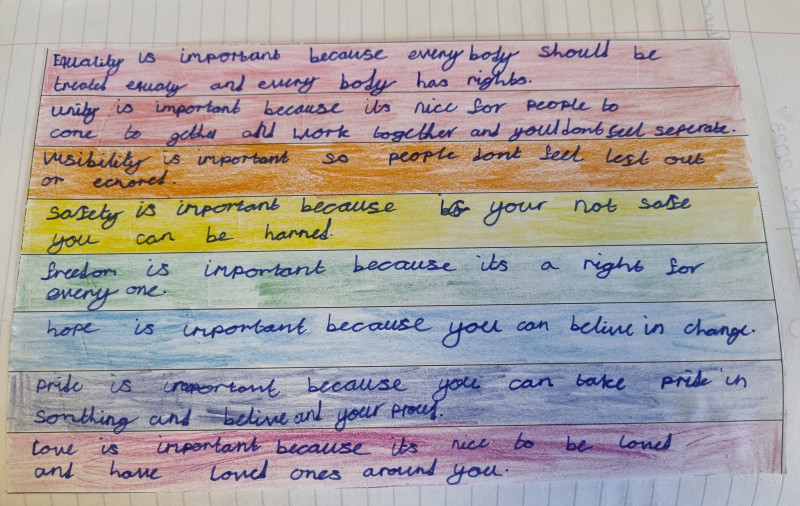 Equality is important because every body should be
treated equaly and every body has rights.
unity is important because its nice for people to
come to gether and work together and you'll dont feel seperate.
Visibility is important so people dont feel left out
or ecnored.
Safety is important because if your not safe
you can be harmed.
freedom is important because its a right for
every one.
hope is important because you can belive in change.
Pride is important because you can take pride in
somthing and belive and your proud.
Love is important because its nice to be loved
and have loved ones around you.